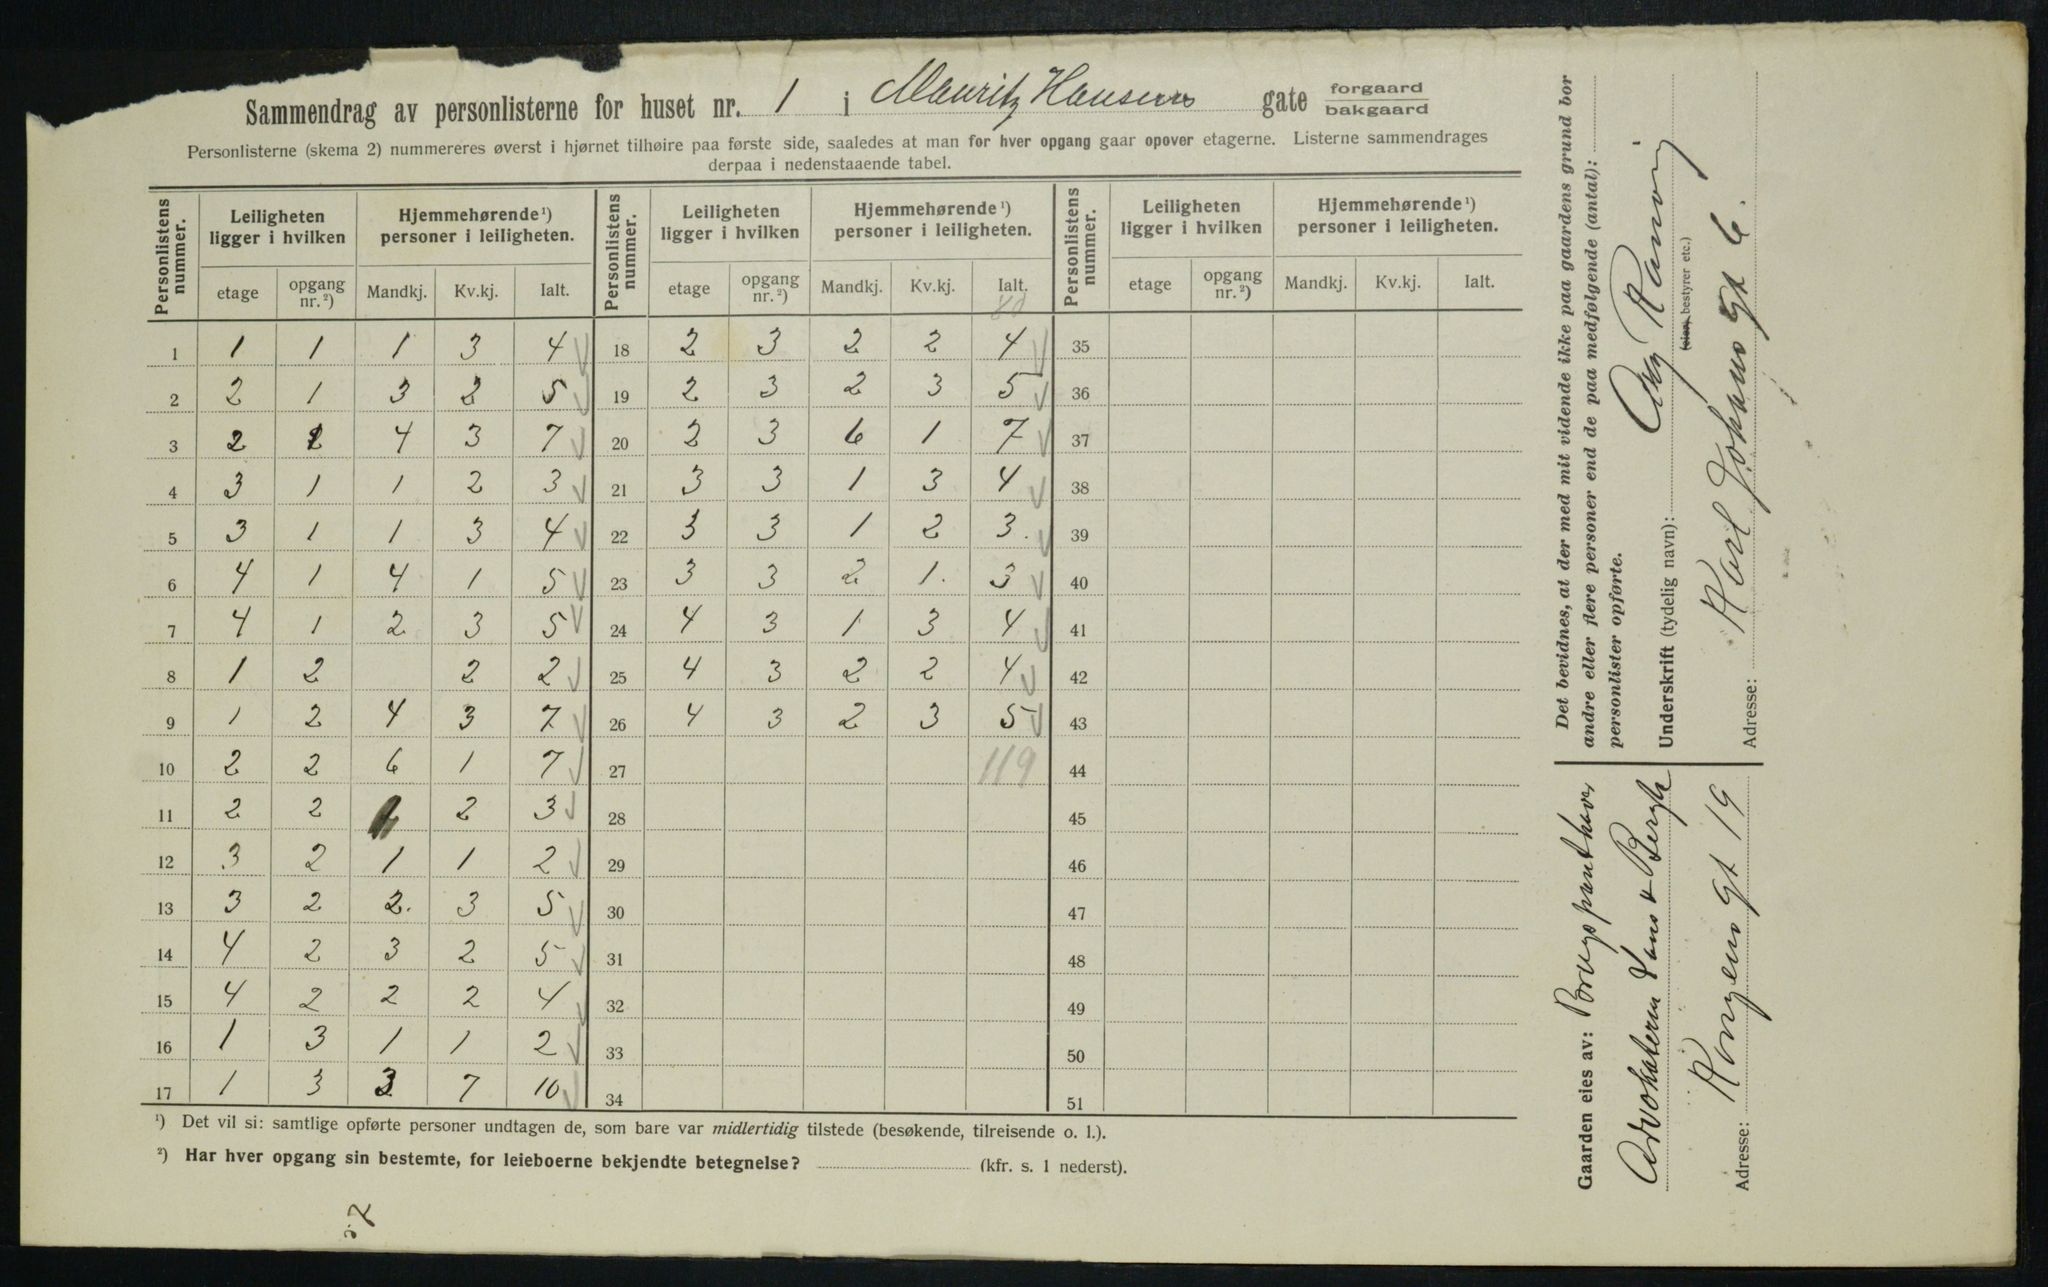 Sammendrag av personlisterne for huset nr. 1 i Mauritz Hansens gate forgaard bakgaard
Personlisterne (skema 2) nummereres øverst i hjørnet tilhøire paa første side, saaledes at man for hver opgang gaar opover etagerne. Listerne sammendrages
derpaa i nedenstaaende tabel.
Personlistens nummer. Leiligheten ligger i hvilken Hjemmehørende ¹) personer i leiligheten. Personlistens nummer. Leiligheten ligger i hvilken Hjemmehørende ¹) personer i leiligheten. Personlistens nummer. Leiligheten ligger i hvilken Hjemmehørende ¹) personer i leiligheten.
etage opgang nr. ²) Mandkj. Kv.kj. Ialt. etage opgang nr. ²) Mandkj. Kv.kj. Ialt. etage opgang nr. ²) Mandkj. Kv.kj. Ialt.
80
1 1 1 1 3 4 18 2 3 2 2 4 35
2 2 1 3 2 5 19 2 3 2 3 5 36
3 2 1 4 3 7 20 2 3 6 1 7 37
4 3 1 1 2 3 21 3 3 1 3 4 38
5 3 1 1 3 4 22 3 3 1 2 3. 39
6 4 1 4 1 5 23 3 3 2 1. 3 40
7 4 1 2 3 5 24 4 3 1 3 4 41
8 1 2 2 2 25 4 3 2 2 4 42
9 1 2 4 3 7 26 4 3 2 3 5 43
10 2 2 6 1 7 27 119 44
11 2 2 1 2 3 28 45
12 3 2 1 1 2 29 46
13 3 2 2. 3 5 30 47
14 4 2 3 2 5 31 48
15 4 2 2 2 4 32 49
16 1 3 1 1 2 33 50
17 1 3 3 7 10 34 51
¹) Det vil si: samtlige opførte personer undtagen de, som bare var midlertidig tilstede (besøkende, tilreisende o. l.).
²) Har hver opgang sin bestemte, for leieboerne bekjendte betegnelse? (kfr. s. 1 nederst).
Det bevidnes, at der med mit vidende ikke paa gaardens grund bor
andre eller flere personer end de paa medfølgende (antal):
personlister opførte.
Underskrift (tydelig navn):
(eier, bestyrer etc.)
Adresse: Karl Johans gt 6.
Gaarden eies av:
Advokaterne
Adresse: Kongens gt 19